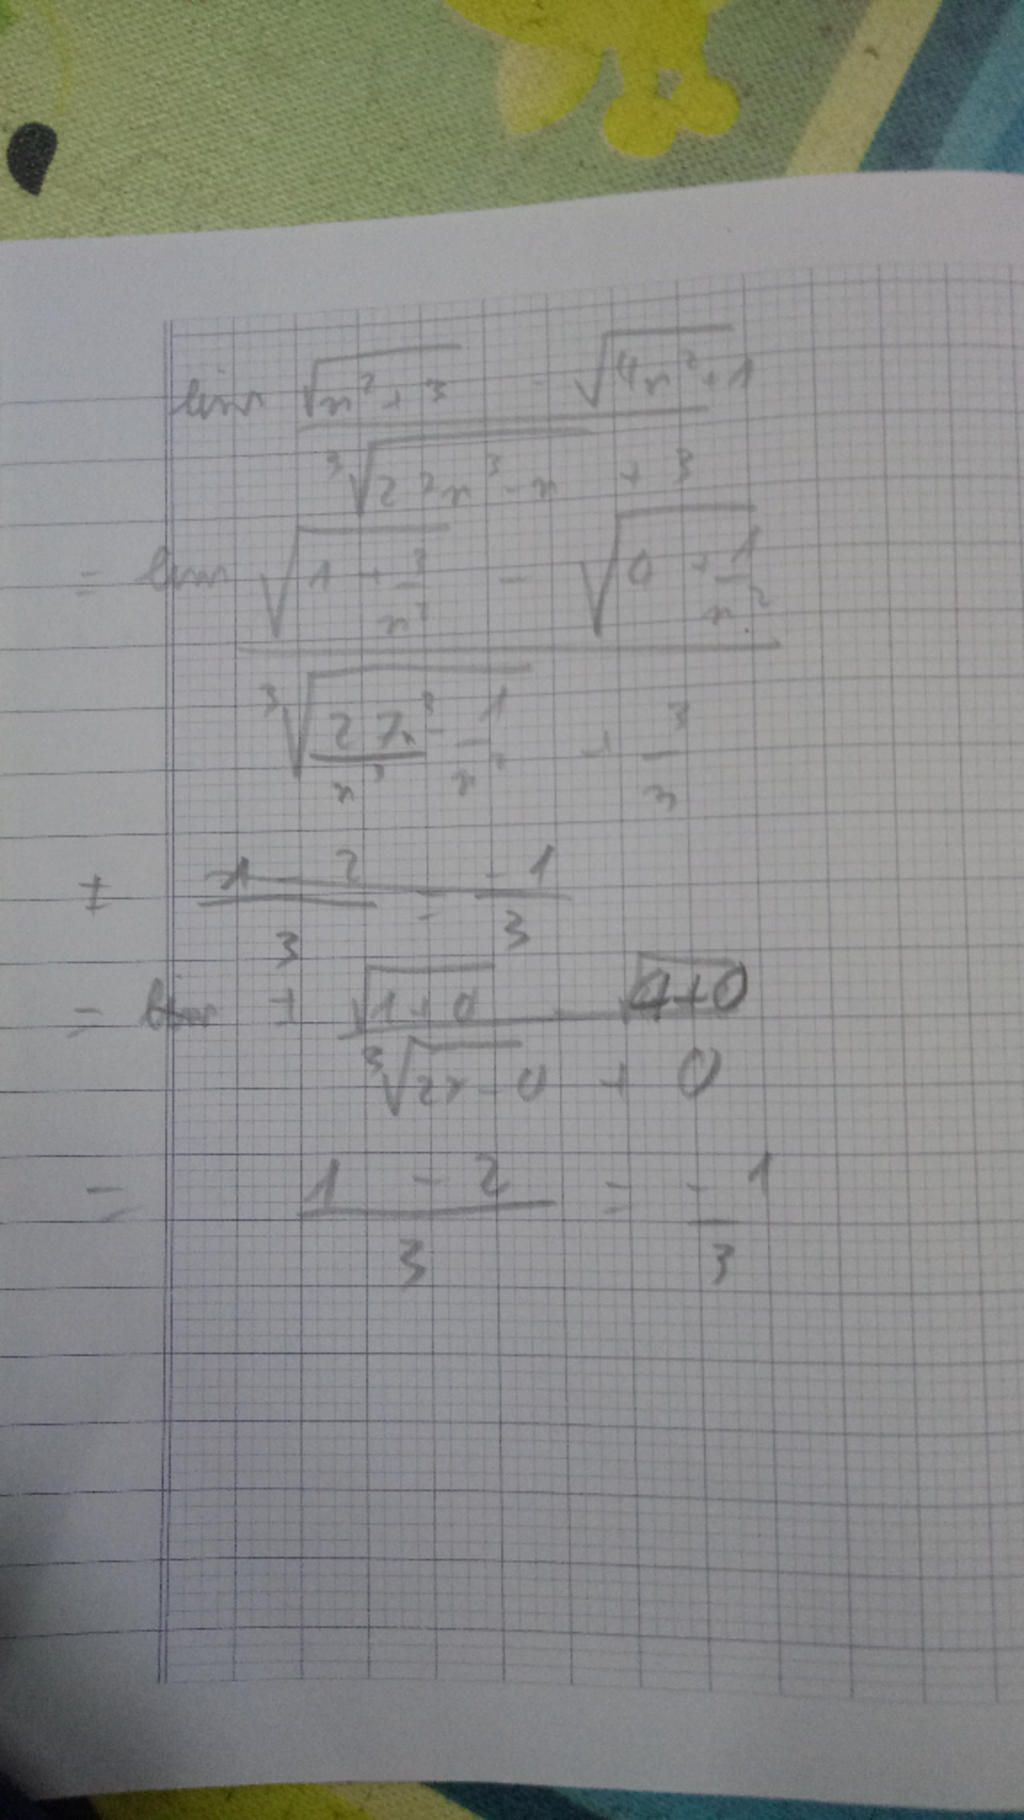 lim (√(n² + 3) - √(4n² + 1)) / (³√(27n³ - n) + 3)
= lim (√(1 + 3/n²) - √(0 + 1/n²)) / (³√(27n³/n³ - 1/n²) + 3/n)
± (1 - 2)/3 = -1/3
= lim ± (√(1+0) - √(4+0)) / (³√(27-0) + 0)
= (1 - 2)/3 = -1/3